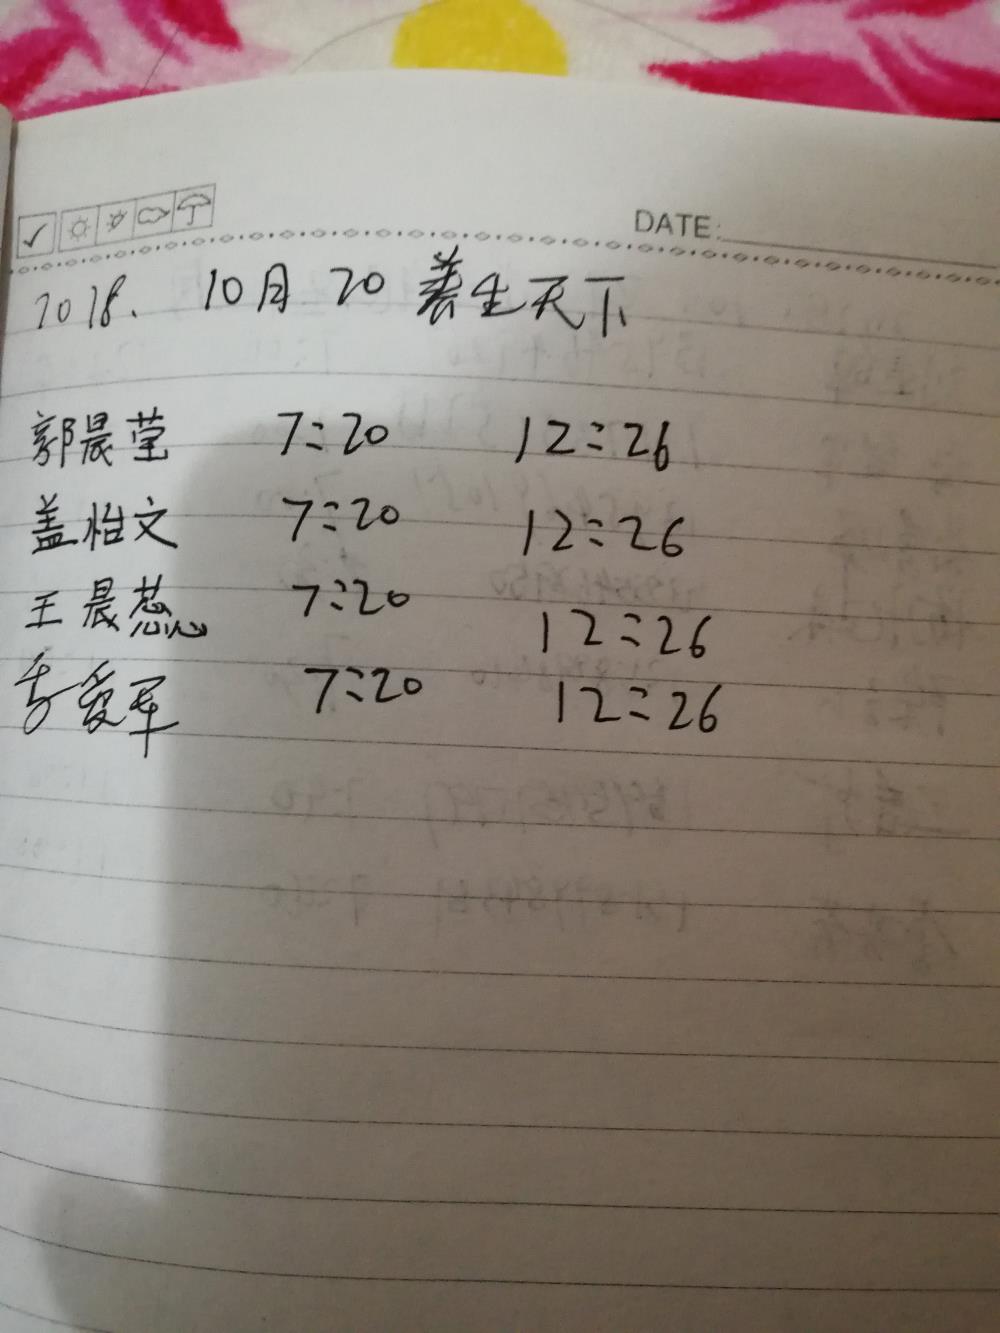 DATE:
2018. 10月 20 养生天下
郭晨莹 7:20 12:26
盖怡文 7:20 12:26
王晨蕊 7:20 12:26
李爱军 7:20 12:26